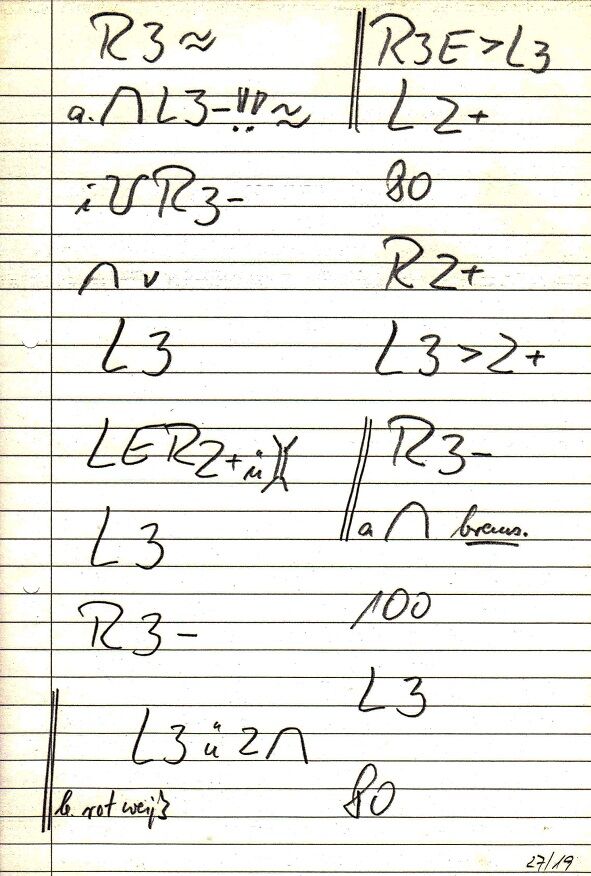 R3 ≈
a. ∩ L3-!!! ≈
i V R3-
∩ v
L3
LER2+ ü )(
L3
R3-
L3 ü 2 ∩
b. rot weiß
R3E>L3
L2+
80
R2+
L3>2+
R3-
a ∩ brems.
100
L3
80
27/19